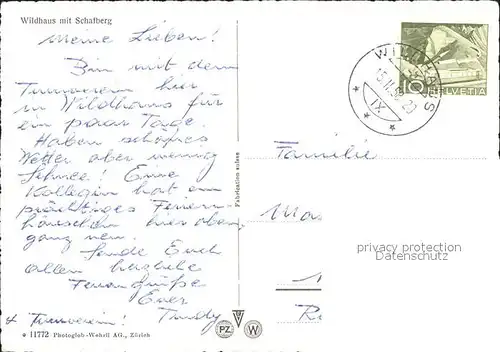 Wildhaus mit Schafberg
Meine Lieben!
Bin mit dem
Turnverein hier
in Wildhaus für
ein paar Tage.
Haben schönes
Wetter aber wenig
Schnee! Eine
Kollegin hat ein
prächtiges Ferien-
häuschen hier oben,
ganz neu.
Sende Euch
allen herzliche
Feriengrüße
Euer
Trudy
+ Turnverein!
11772 Photoglob-Wehrli AG., Zürich
Fabrication suisse
PZ W
WILDHAUS
IX.
10 HELVETIA
Familie
privacy protection
www.ansichtskarten-center.de